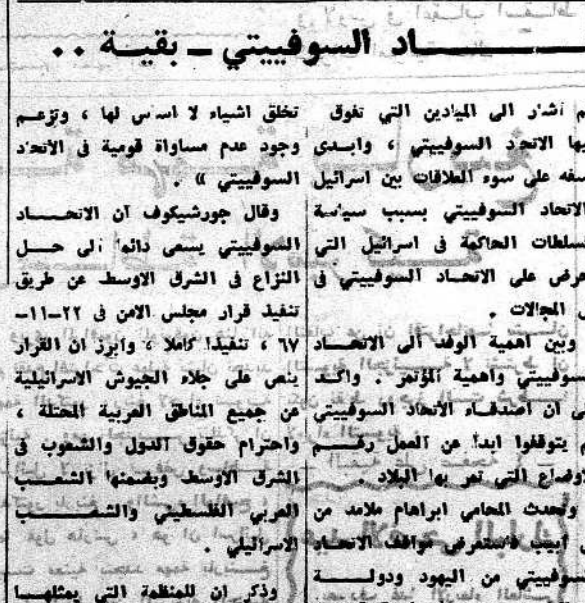 ـاد السوفييتي ـ بقية ..
م أشار الى الميادين التي تفوق
يها الاتحاد السوفييتي ، وابـدى
سفه على سوء العلاقات بين اسرائيل
الاتحاد السوفييتي بسبب سياسة
سلطات الحاكمة فى اسرائيل التي
حرض على الاتحـاد السوفييتي فى
المجالات .
وبين اهمية الوفد الى الاتحـــاد
سوفييتي واهمية المؤتمر . واكـد
ى ان اصدقـاء الاتحاد السوفييتي
م يتوقفوا ابدا عن العمل رغـــم
لاوضاع التي تمر بها البلاد .
وتحدث المحامي ابراهام ملامد من
ل ابيب فاستعرض مواقف الاتحـاد
سوفييتي من اليهود ودولــــة
تخلق اشياء لا اساس لها ، وتزعـم
وجود عدم مساواة قومية فى الاتحاد
السوفييتي » .
وقال جورشيكوف ان الاتحــــاد
السوفييتي يسعى دائما الى حـــل
النزاع فى الشرق الاوسط عن طريق
تنفيذ قرار مجلس الامن فى ٢٢-١١-
٦٧ ، تنفيذا كاملا ، وابرز ان القرار
ينص على جلاء الجيوش الاسرائيلية
عن جميع المناطق العربية المحتلة ،
واحترام حقوق الدول والشعوب فى
الشرق الاوسط وبضمنها الشعــب
العربي الفلسطيني والشعـــــب
الاسرائيلي .
وذكر ان للمنظمة التي يمثلهــا